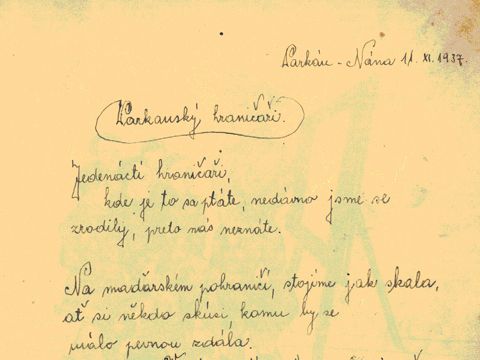 Parkáň - Nána 11. XI. 1937.
Parkanský hraničáři.
Jedenáctí hraničáři,
kde je to sa ptáte, nedávno jsme se
zrodilý, preto nás neznáte.
Na maďarském pohraničí, stojíme jak skala,
ať si někdo skúsi, kamu by se
málo pevnou zdála.